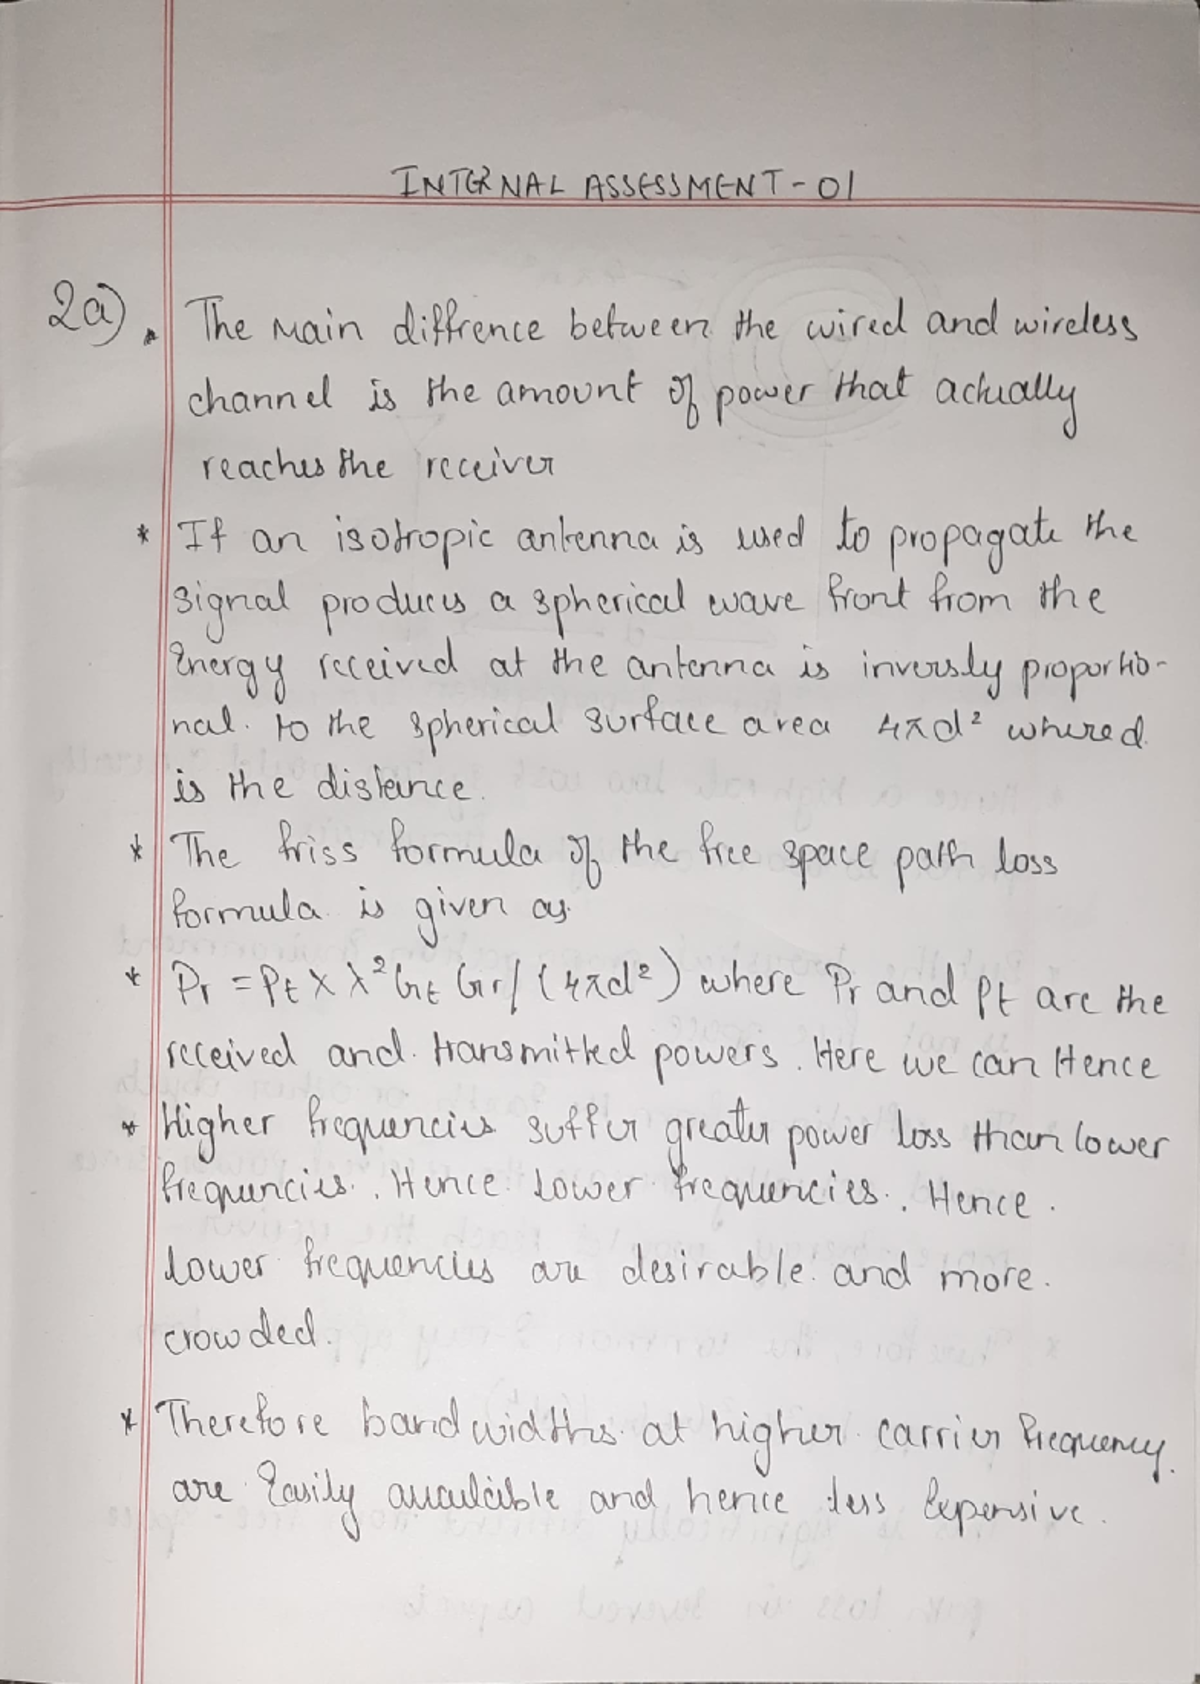 INTERNAL ASSESSMENT - 01
2a) . The main diffrence between the wired and wireless
channel is the amount of power that actually
reaches the receiver
* If an isotropic antenna is used to propagate the
signal produces a spherical wave front from the
Energy received at the antenna is inversly proportio-
nal. to the spherical surface area 4πd² where d
is the distance.
* The friss formula of the free space path loss
formula is given as
* Pr = Pt x λ² Gt Gr / (4πd²) where Pr and Pt are the
received and transmitted powers. Here we can Hence
* Higher frequencies suffer greater power loss than lower
frequencies. Hence lower frequencies. Hence.
lower frequencies are desirable and more.
crowded.
* Therefore bandwidths at higher carrier frequency.
are Easily auailcible and hence less Expensive.